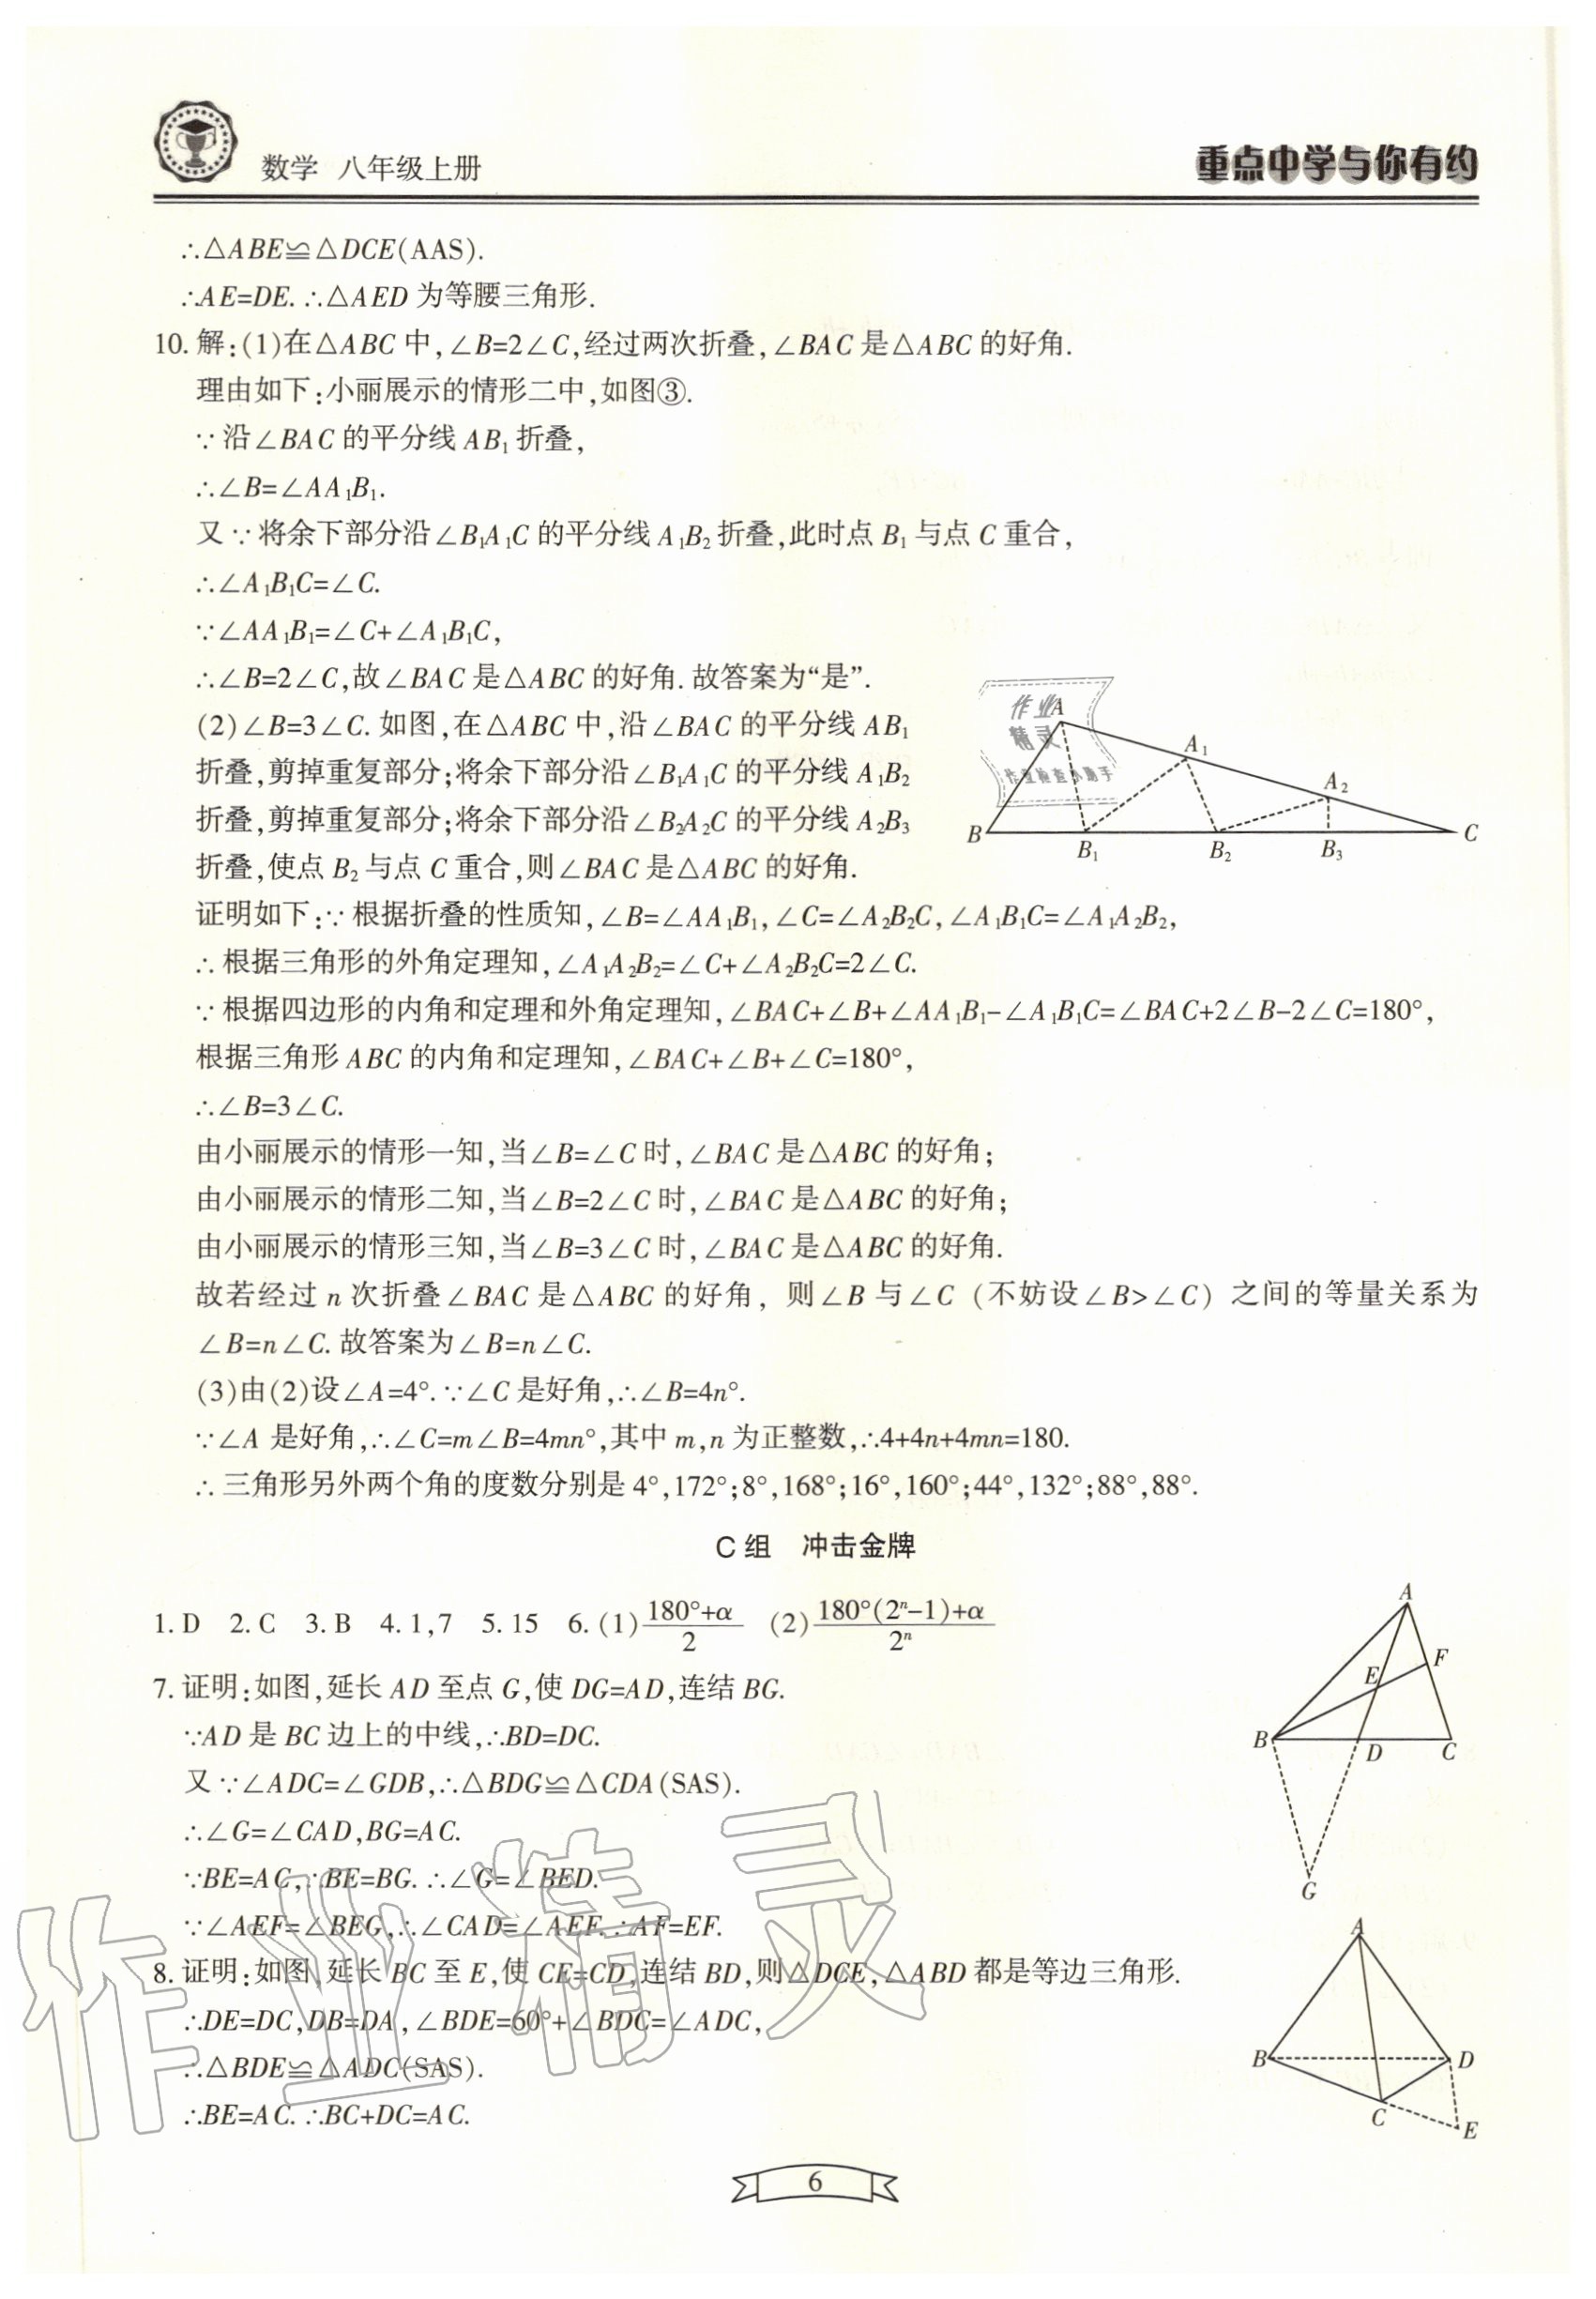 数学 八年级上册
重点中学与你有约
∴△ABE≌△DCE(AAS).
∴AE=DE.∴△AED 为等腰三角形.
10. 解:(1)在△ABC 中,∠B=2∠C,经过两次折叠,∠BAC 是△ABC 的好角.
理由如下:小丽展示的情形二中,如图③.
∵沿∠BAC 的平分线 AB₁ 折叠,
∴∠B=∠AA₁B₁.
又∵将余下部分沿∠B₁A₁C 的平分线 A₁B₂ 折叠,此时点 B₁ 与点 C 重合,
∴∠A₁B₁C=∠C.
∵∠AA₁B₁=∠C+∠A₁B₁C,
∴∠B=2∠C,故∠BAC 是△ABC 的好角. 故答案为“是”.
(2)∠B=3∠C. 如图,在△ABC 中,沿∠BAC 的平分线 AB₁
折叠,剪掉重复部分;将余下部分沿∠B₁A₁C 的平分线 A₁B₂
折叠,剪掉重复部分;将余下部分沿∠B₂A₂C 的平分线 A₂B₃
折叠,使点 B₂ 与点 C 重合,则∠BAC 是△ABC 的好角.
作业
精灵
作业检查小助手
A
A₁
A₂
B
B₁
B₂
B₃
C
证明如下:∵根据折叠的性质知,∠B=∠AA₁B₁,∠C=∠A₂B₂C,∠A₁B₁C=∠A₁A₂B₂,
∴根据三角形的外角定理知,∠A₁A₂B₂=∠C+∠A₂B₂C=2∠C.
∵根据四边形的内角和定理和外角定理知,∠BAC+∠B+∠AA₁B₁-∠A₁B₁C=∠BAC+2∠B-2∠C=180°,
根据三角形 ABC 的内角和定理知,∠BAC+∠B+∠C=180°,
∴∠B=3∠C.
由小丽展示的情形一知,当∠B=∠C 时,∠BAC 是△ABC 的好角;
由小丽展示的情形二知,当∠B=2∠C 时,∠BAC 是△ABC 的好角;
由小丽展示的情形三知,当∠B=3∠C 时,∠BAC 是△ABC 的好角.
故若经过 n 次折叠∠BAC 是△ABC 的好角, 则∠B 与∠C (不妨设∠B>∠C) 之间的等量关系为
∠B=n∠C. 故答案为∠B=n∠C.
(3)由(2)设∠A=4°.∵∠C 是好角,∴∠B=4n°.
∵∠A 是好角,∴∠C=m∠B=4mn°,其中 m,n 为正整数,∴4+4n+4mn=180.
∴三角形另外两个角的度数分别是 4°,172°;8°,168°;16°,160°;44°,132°;88°,88°.
C 组 冲击金牌
1. D 2. C 3. B 4. 1,7 5. 15 6. (1)(180°+α)/2 (2)(180°(2ⁿ-1)+α)/2ⁿ
7. 证明:如图,延长 AD 至点 G,使 DG=AD,连结 BG.
∵AD 是 BC 边上的中线,∴BD=DC.
又∵∠ADC=∠GDB,∴△BDG≌△CDA(SAS).
∴∠G=∠CAD,BG=AC.
∵BE=AC,∴BE=BG.∴∠G=∠BED.
∵∠AEF=∠BEG,∴∠CAD=∠AEF.∴AF=EF.
A
F
E
B
D
C
G
8. 证明:如图,延长 BC 至 E,使 CE=CD,连结 BD,则△DCE,△ABD 都是等边三角形.
∴DE=DC,DB=DA,∠BDE=60°+∠BDC=∠ADC,
∴△BDE≌△ADC(SAS).
∴BE=AC.∴BC+DC=AC.
A
B
D
C
E
作业精灵
6